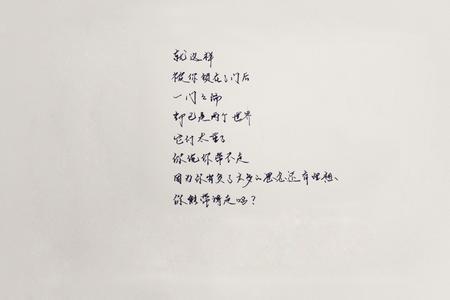 就这样
被你锁在了门后
一门之隔
却已是两个世界
它们太重了
你说你带不走
因为你背负了太多的思念还有理想、
你能带谁走吗？